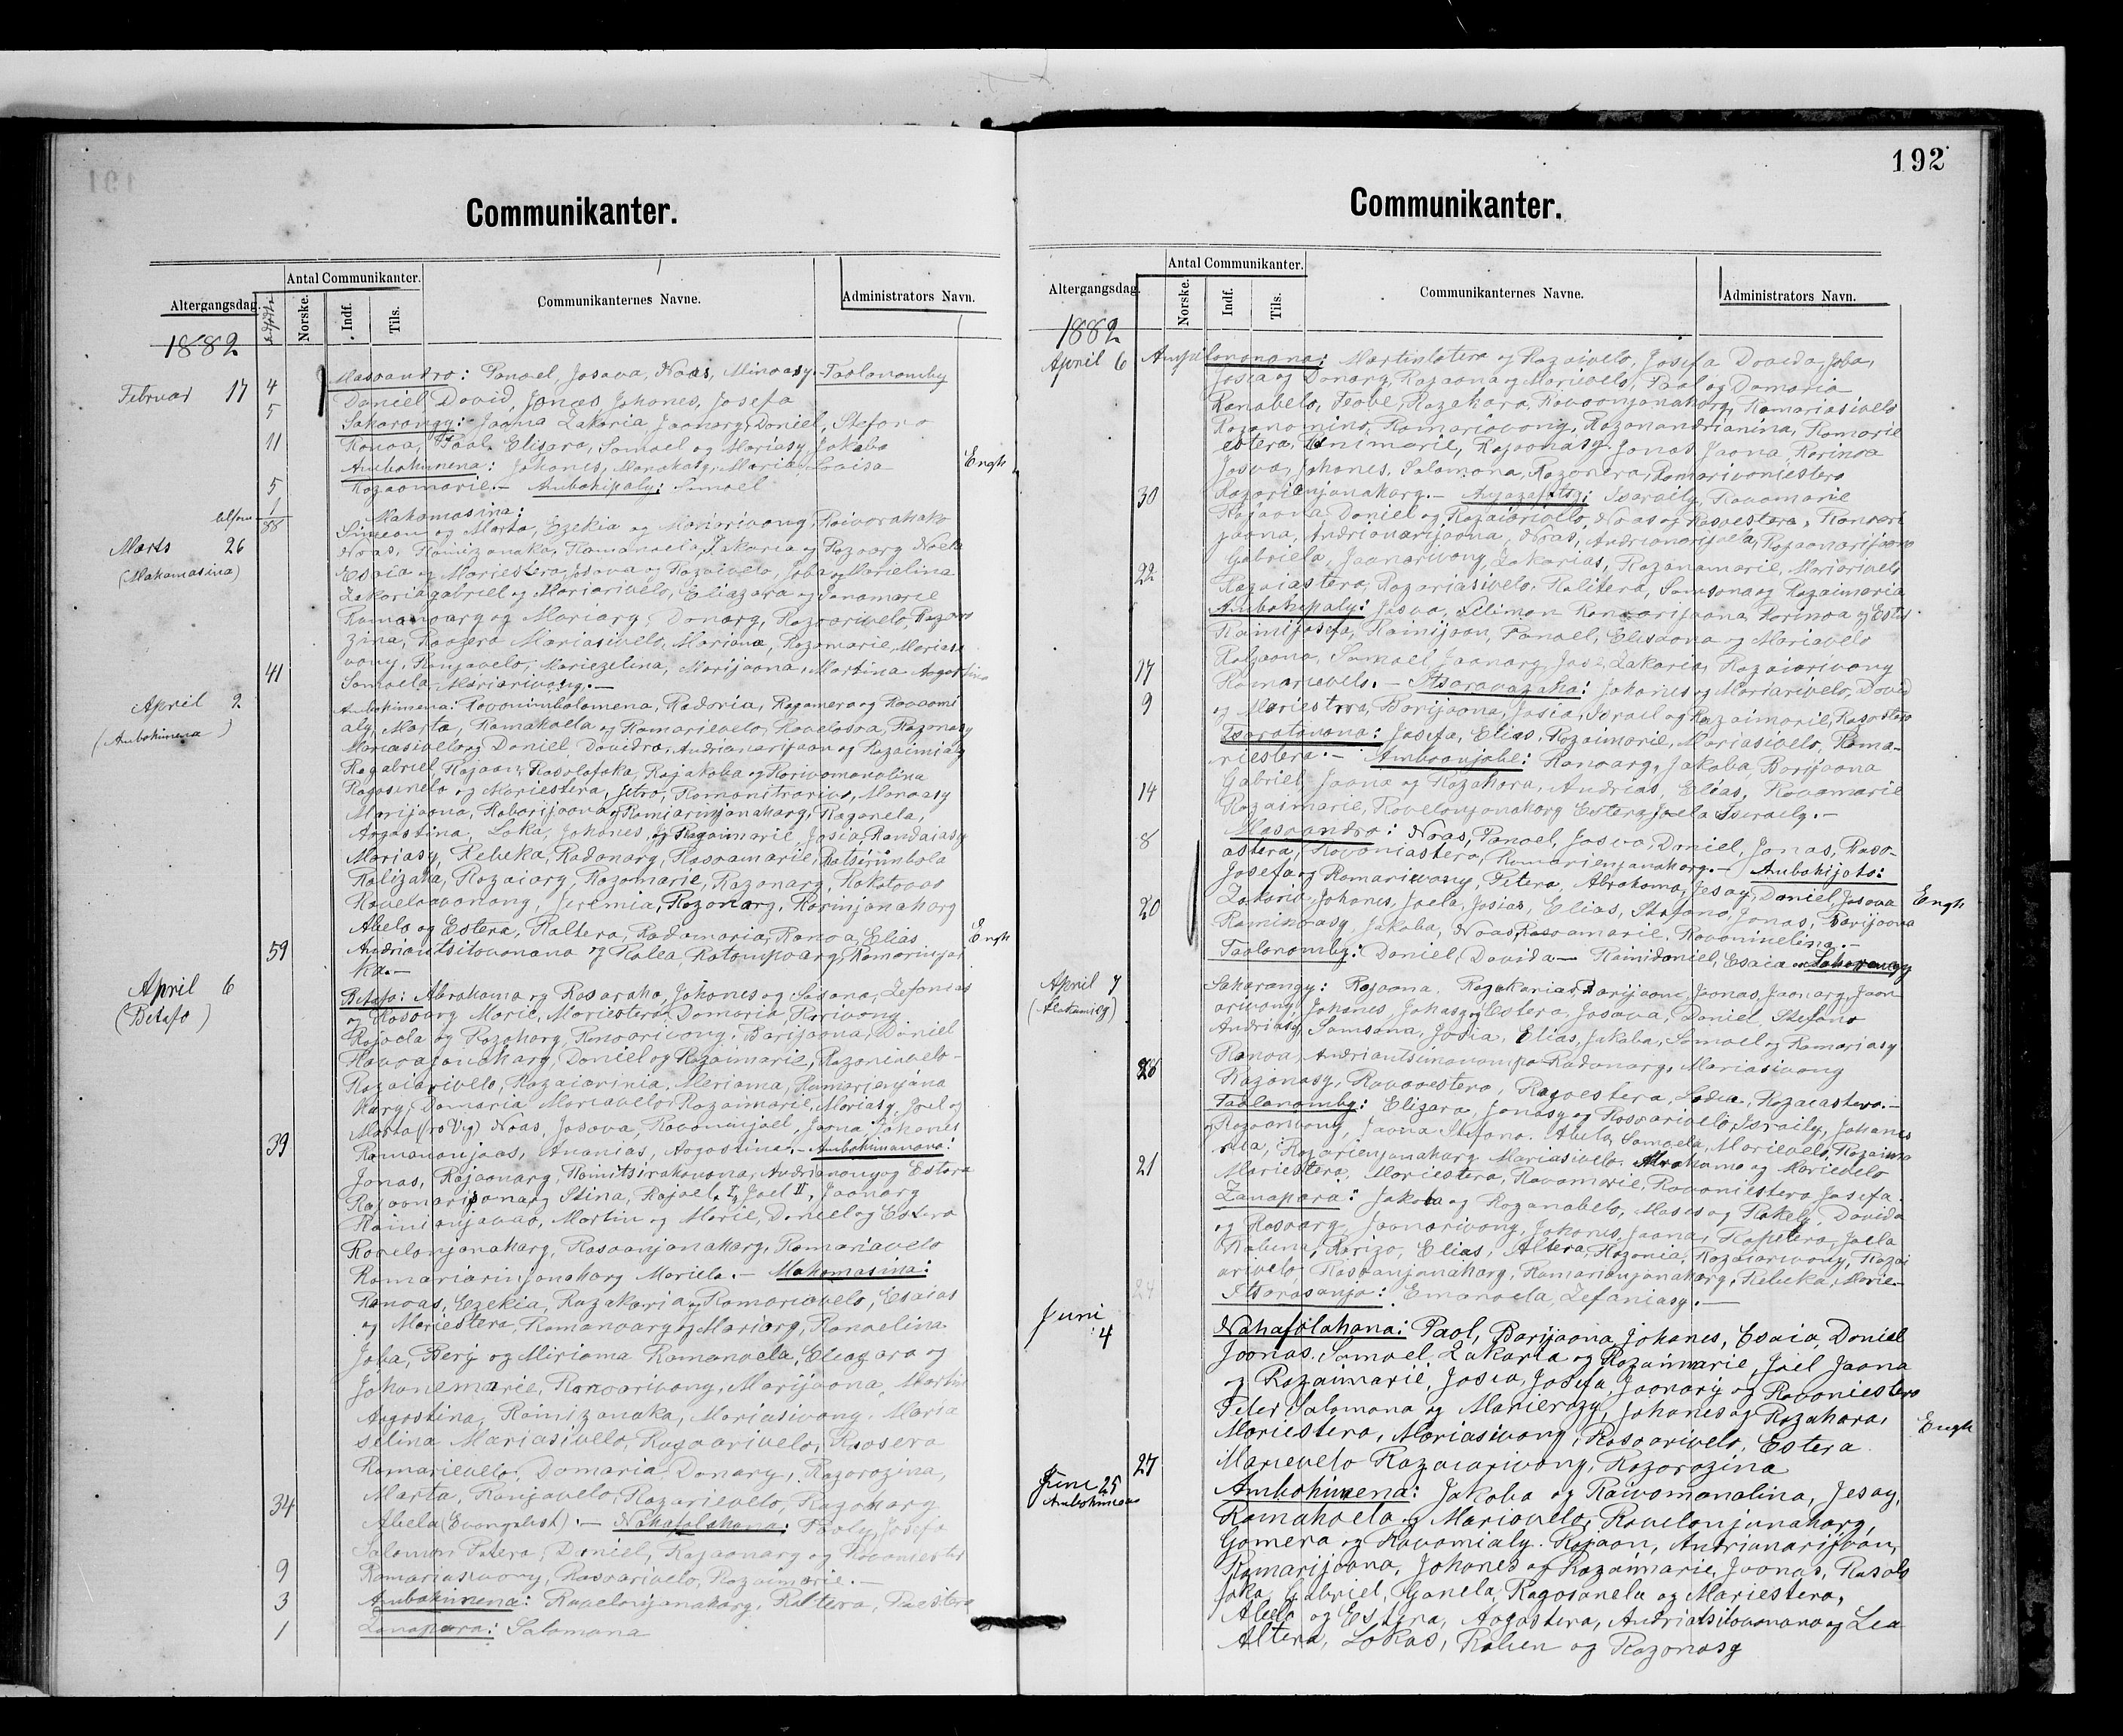 192
Communikanter.
Altergangsdag.
Antal Communikanter.
Norske.
Indf.
Tils.
Communikanternes Navne.
Administrators Navn.
1882
Februar 17
4
Masoandro: Panoel, Josava, Noas, Minoasy - Taolanomby
Daniel, David, Jonas Johanes, Josefa
5
Saharangy: Jaona Zakaria Jaonary, Daniel, Stefano
11
Ranoa, Paol, Elisara, Samoel og Mariasy, Jakaba
Ambohimena: Johanes, Manakasy, Maria Lovisa
Engh
5
Razaomarie. - Ambohipaly: Simoel
1
88
Mahamasina:
Marts 26
(Mahamasina)
Simeon og Marta, Ezekia og Mariarivony, Raivorahako
Noas, Rainizanaka, Ramanoela, Zakaria og Razoary Noela
Esaia og Mariestera, Josava og Razaivelo, Joba og Marielina
Zakariagabriel og Mariarivelo, Eliazara og Janamarie
Ramanoary og Mariary, Donary, Razoarivelo, Razoro
zina, Raozera Mariasivelo, Mariana, Razamarie, Mariasi
vony, Ranjavelo, Mariezelina, Marijaona, Martina Aogostina
41
Samoela, Mariarivony. -
April 2
(Ambohimena)
Ambohimena: Ravonimbolamena, Radoria, Ragamera og Ravaomi
aly, Marta, Ramahaela og Ramarievelo, Ravelosoa, Razanasy
Mariasivelo og Daniel, Davidra, Andrianarijaon og Razaimialy
Ragabriel, Rajaon, Rasolofoka, Rajakoba og Rarivomanalina
Ragosinelo og Mariestera, Jetro, Ramanitrarivo, Manoasy
Marijaona, Raborijaona og Ramiarinjanahary, Raganela,
Aogastina, Loka, Johanes, og Razaimarie, Josia, Randaiasy
Mariasy, Rebeka, Radonary, Rasoamarie, Ratsirimbola
Ralizara, Razaiary, Razamarie, Razanary, Rakotovao
Ravelovonony, Jeremia, Razonary, Rarinjanahary
Abela og Estera, Raltera, Radamaria, Ranoa, Elias
Engh
59
Andriantsitovonana og Ralea, Ratompoary, Ramarinjar
ka. -
April 6
(Betafo)
Betafo: Abrahama og Rasaraha, Johanes og Sosana, Zefanias
og Rasoary Marie, Mariestera Damaria Rarivony
Rajoela og Razahary, Ranoarivony, Barijaona, Daniel
Ravoajanahary, Daniel og Razaimarie, Razanivelo -
Razaiarivelo, Razaiarinia, Meriama, Ramarienjana
hary, Damaria Mariavelo Razaimarie, Mariasy, Joel og
Marta (ro Vy) Noas, Josava, Ravoninjoel, Jaona, Johanes
39
Ramanonjaos, Ananias, Aogostina. - Ambohimanana:
Jonas, Rajaonary, Rainitsirahonana, Andrianony og Estera
Rajaonarisona og Stina, Rajoel I, Joel II, Jaonary
Rainianjavao, Martin og Marie, Daniel og Estera
Ravelonjanahary, Rasoanjanahary, Ramariavelo
Ramariarinjanahary Mariela. - Mahamasina:
Ranoas, Ezekia, Razakaria og Ramariavelo, Esaias
og Mariestera, Ramanoary og Mariary, Ranoelina
Joba, Berj og Miriama Ramanoela, Eliazara og
Johanemarie, Ranoarivony, Marijaona, Martin
Aogostina, Rainizanaka, Mariasivony, Maria
selina Mariasivelo, Razoarivelo, Raosera
Ramarievelo, Domaria Donary, Razorozina,
34
Marta, Ranjavelo, Razarievelo, Razohary
Abela (Evangelist). - Nahafolahana: Paoly, Josefa
Salomon Petera, Daniel, Rajaonary og Ravoniester
9
Ramariasivony, Rasoarivelo, Razaimarie. -
3
Ambohimena: Ravelonjanahary, Raltera, Paestera
1
Zanapara: Salomona
Communikanter.
Altergangsdag.
Antal Communikanter.
Norske.
Indf.
Tils.
Communikanternes Navne.
Administrators Navn.
1882
April 6
Martinlotera og Razaivelo, Josefa Davida, Joba,
Josia og Donary, Rajaona og Marievelo, Paol og Damaria
Ranabelo, Feobe, Razahara, Ravaonjanahary, Ramariasivelo
Razanamino, Ramariavony, Razanandrianina, Ramarie
estera, Annimarie, Rajaonasy Jonas Jaona, Rarinoa
Josva, Johanes, Salomona, Razanera, Ramarivoniestera
30
Razarienjanahary. - Anjazafotsy: Israily, Ravamarie
Rajaona Daniel og Razaiarivelo, Noas og Rasoestera, Ranoari
jaona, Andrianarijaona, Noas, Andrianarivela, Rajaonarijaona
22
Gabriela, Jaonarivony, Zakarias, Razanamarie, Mariarivelo
Razaiastera, Razariasivelo, Ralitera, Samsona og Razaimaria
Ambohipaly: Josva, Filimon Ranoarijaona, Rarinoa og Ester
Rainijosefa, Rainijaon, Panoel, Elisaona og Mariavelo
17
Raljaona, Samoel Jaonary, Josia Zakaria, Razaiarivony
Ramarievelo. - Itsaravazaha: Johanes og Mariarivelo, David
9
og Mariestera, Barijaona, Josia, Israel og Razaimarie, Rasoestera
Tsaratanana: Josefa, Elias, Razaimarie, Mariasivelo, Rama-
riestera. - Amboanjobe: Ranoary, Jakaba, Barijaona
14
Gabriel, Jaona og Razahara, Andrias, Elias, Ravamarie
Razaimarie, Ravelonjanahary Estera Joela Israely. -
8
Masoandro: Noas, Panoel, Josva, Daniel, Jonas, Raso-
astera, Ravoniastera, Ramarienjanahary. - Ambohijato:
Josefa og Ramarivony, Petera, Abrahama, Jesay, Daniel, Josava
Engh
20
Zakaria, Johanes, Joela, Josias, Elias, Stefano, Jonas, Barijaona
Raminoasy, Jakaba, Noas, Rasoamarie, Ravoninelina. -
Taolanomby: Daniel, Davida - Rainidaniel, Esaia
April 7
Saharangy: Rajaona, Razakarias, Barijaona, Jaonas, Jaonary, Jaon
arivony, Johanes, Johasy og Estera, Josava, Daniel, Stefano
Andriasy, Samsona, Josia, Elias, Jakaba, Samoel og Ramariasy
26
Ranoa, Andriantsimavompa Radonary, Mariasivony
Razonasy, Ravaoestera, Razoestera, Lodia, Razaiastera. -
Taolanomby: Elizara, Jonasy og Rasoarivelo, Israily, Johanes
og Razoarivony, Jaona Stefano. Abela, Samoela, Marievelo, Razaima
21
ria, Razarienjanahary Mariasivelo. Abrahama og Marievelo
Mariestera, Mariestera, Ravamarie, Ravoniestera Josefa.
Zanapara: Jakoba og Razanabelo, Moses og Rakely, Davida
og Rasoary, Jaonarivony, Johanes, Jaona, Rapetera, Joela
Rabuna, Rarizo, Elias, Altera, Razania, Razaiarivony, Razai
arivelo, Rasoanjanahary, Ramarianjanahary, Rebeka, Marie -
24
Itsarasanjo: Emanoela, Zefaniasy. -
Juni 4
Nahafolahana: Paol, Barijaona, Johanes, Esaia, Daniel
Joonas. Samoel Zakaria og Razaimarie, Joel Jaona
og Razaimarie, Josia, Josefa, Jaonary og Ravoniestera
Peter Salomona og Marierozy, Johanes og Razahara,
Mariestera, Mariasivony, Rasoarivelo, Estera.
Engh
27
Marievelo Razaiarivony, Razorozina
Juni 25
Ambohimena
Ambohimena: Jakoba og Raivomanalina, Jesay,
Ramahaela og Mariavelo, Ravelonjanahary,
Gomera og Ravamialy. Rajaon, Andrianarijaon,
Ramarijaona, Johanes og Razaimarie, Joonas, Rasolo
foka, Gabriel, Ganela, Ragosanela og Mariestera,
Abela og Estera, Aogostera, Andriatsitovanana og Lea
Altera, Lokas, Raben og Razonasy